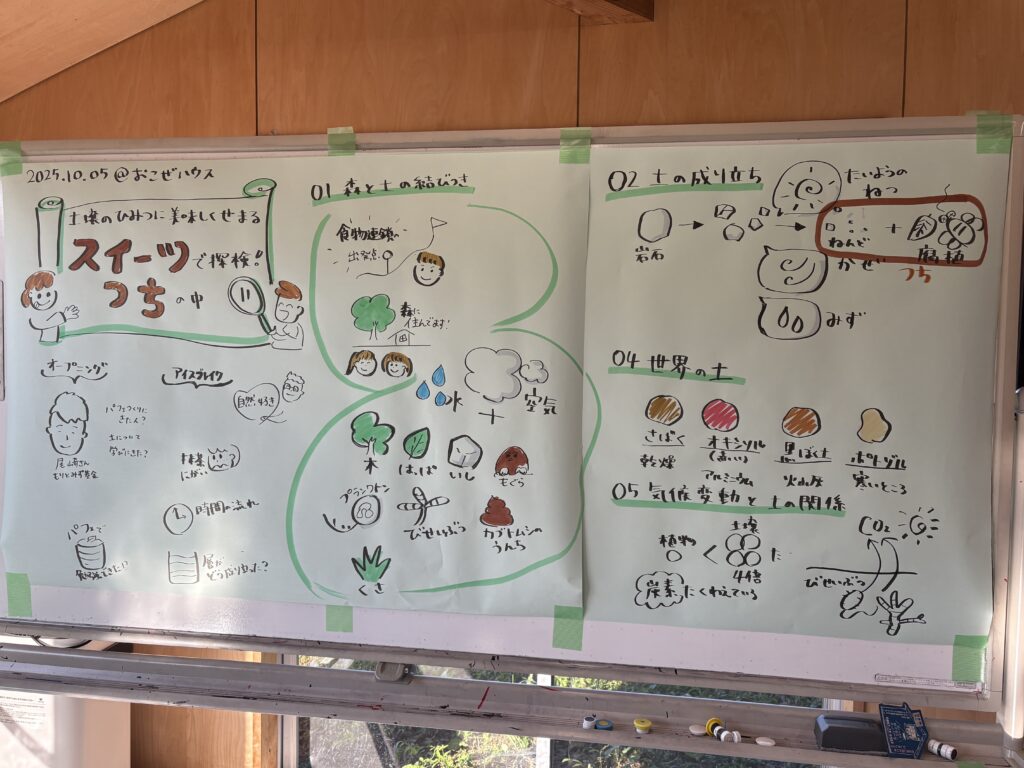 2025.10.05 @おこぜハウス
土壌のひみつに美味しくせまる
スイーツで探検!
つちの中
オープニング
パフェつくりに
きた人?
土について
学びにきた?
尾崎さん
もりとみず基金
パフェで
アイスブレイク
自然好き
抹茶
にがい
時間の流れ
層が
どう成り立った?
01 森と土の結びつき
食物連鎖の
出発点
森に
住んでます!
水
+
空気
木
はっぱ
いし
もぐら
プランクトン
びせいぶつ
カブトムシの
うんち
くさ
02 土の成り立ち
岩石
たいようの
ねつ
かぜ
みず
ねんど
+
腐植
つち
04 世界の土
さばく
乾燥
オキシソル
(赤い)
アルミニウム
黒ぼく土
火山灰
ポドゾル
寒いところ
05 気候変動と土の関係
植物
<
土壌
4倍
炭素 たくわえている
CO2
びせいぶつ